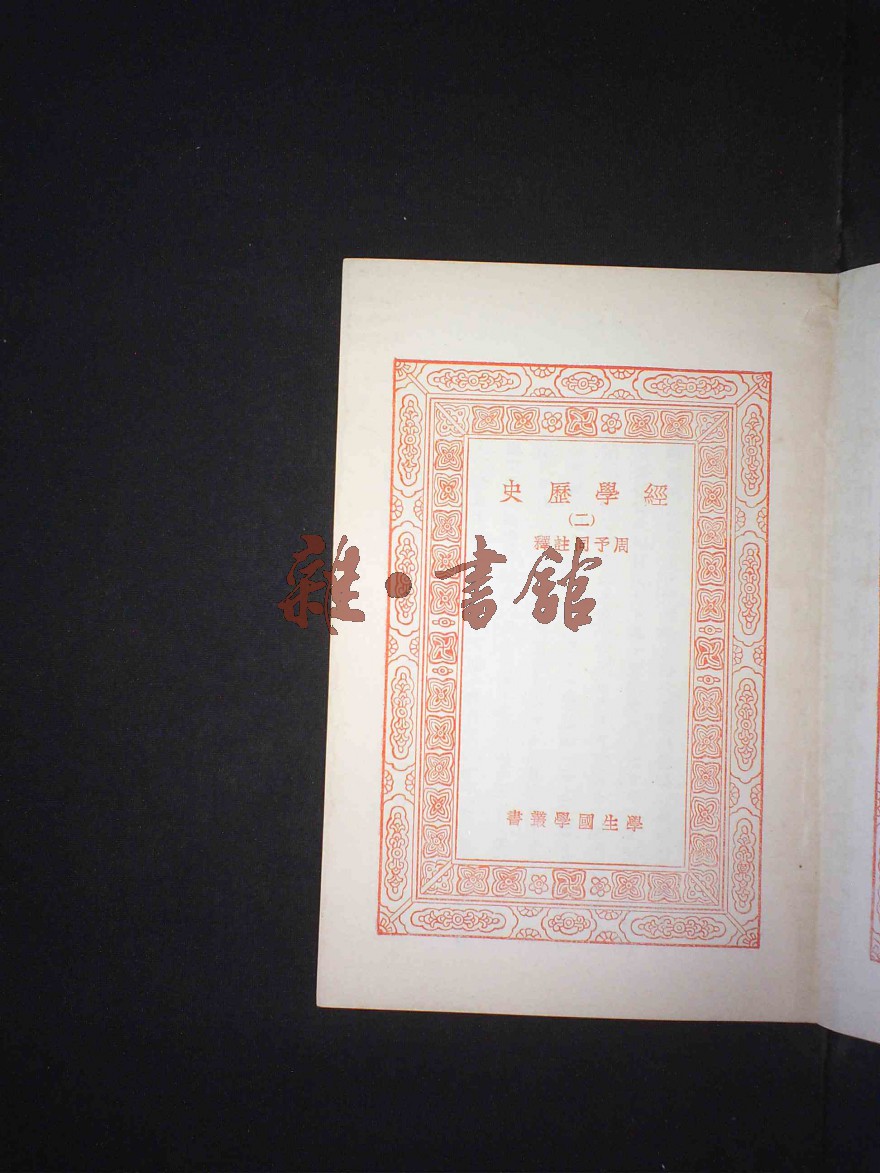 經學歷史
(二)
周予同註釋
雜·書館
學生國學叢書